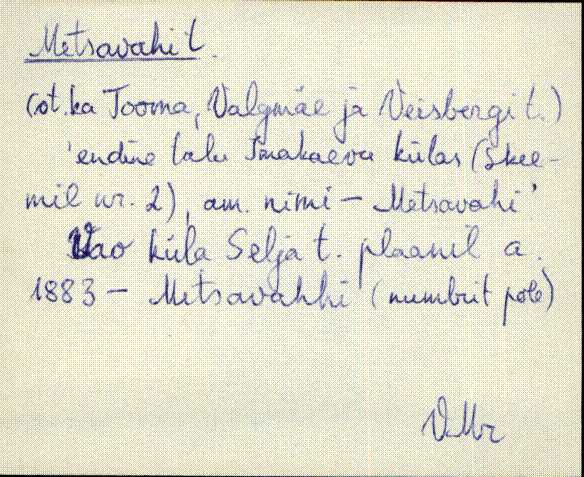 Metsavahi t.
(vt. ka Tooma, Valgmäe ja Veisbergi t.)
'endine talu Imakaevu külas (skee-
mil nr. 2), am. nimi – Metsavahi'
Vao küla Selja t. plaanil a.
1883 – Metsavahhi (numbrit pole)
VMr